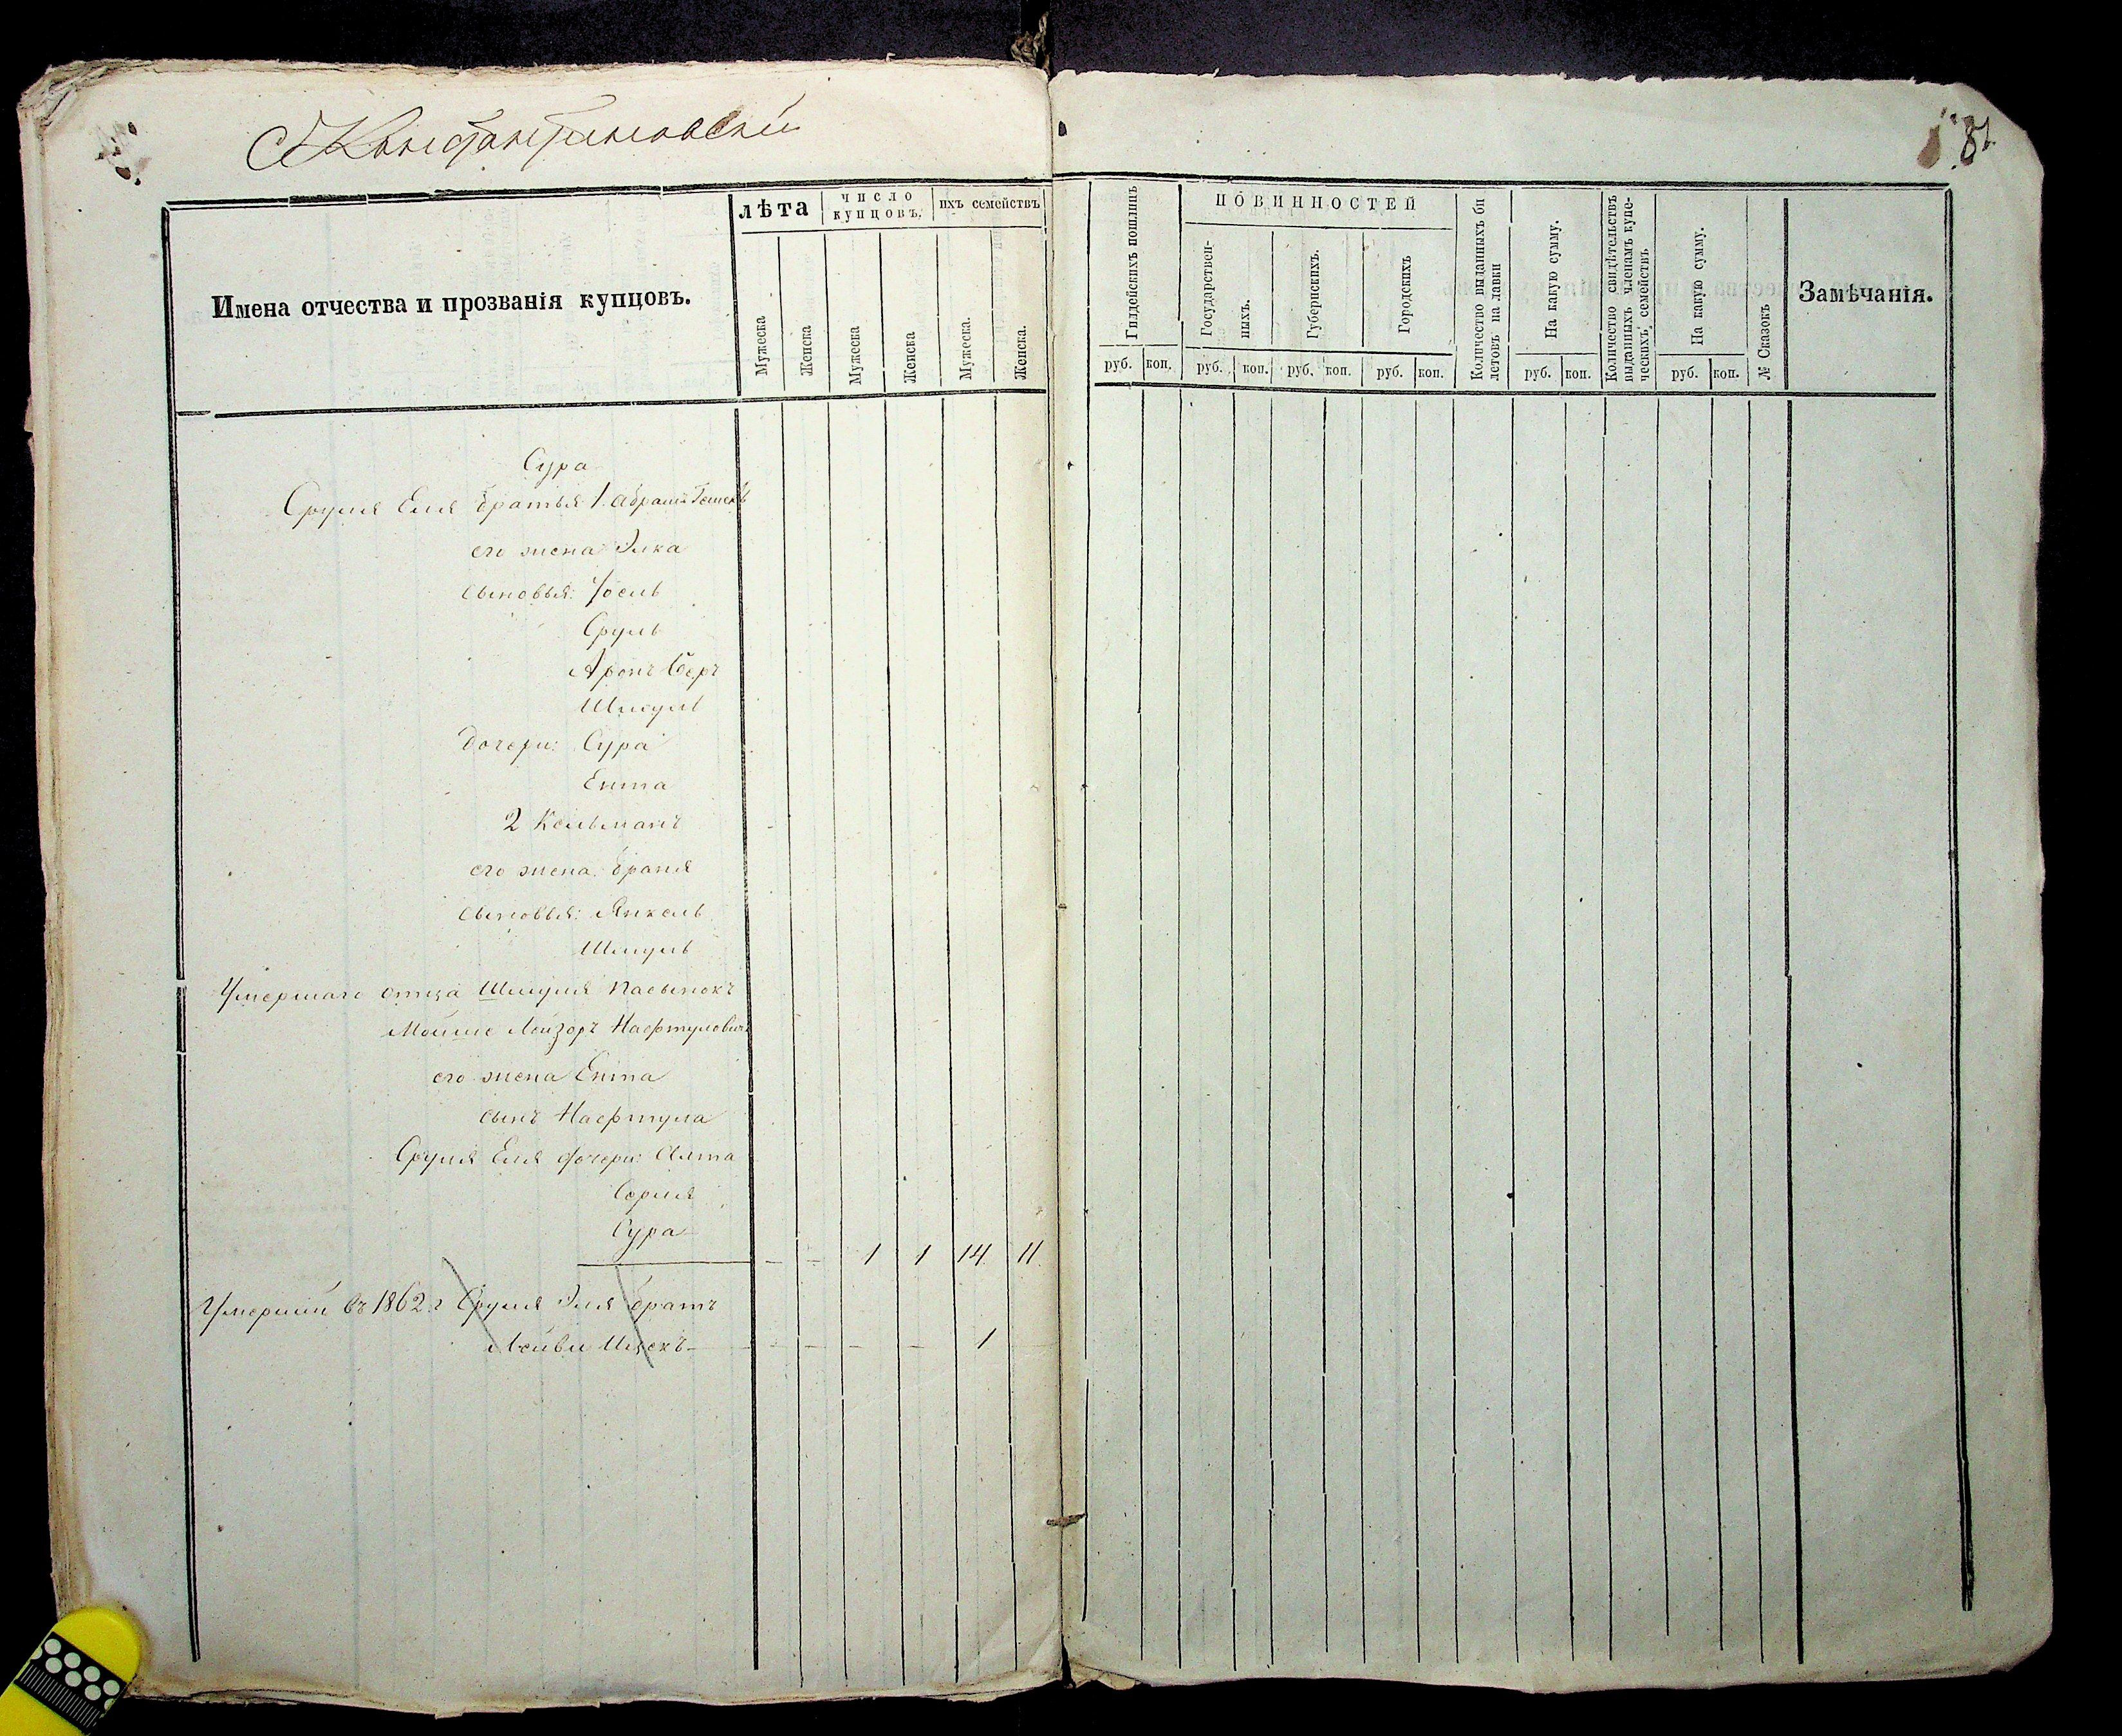 Константиновскій
87
Имена отчества и прозванія купцовъ.
лѣта
число купцовъ.
ихъ семействъ
Мужеска
Женска
Мужеска
Женска
Мужеска.
Женска.
Гилдейскихъ пошлинъ
повинностей
Государствен-
ныхъ.
Губернскихъ.
Городскихъ
Количество выданныхъ би
летовъ на лавки
На какую сумму.
Количество свидѣтельствъ
выданныхъ членамъ купе-
ческихъ семействъ
На какую сумму.
№ Сказокъ
Замѣчанія.
руб. коп. руб. коп. руб. коп. руб. коп. руб. коп. руб. коп.
Сура
Сруля Еля братья 1. Абрамъ
его жена Элка
сыновья: Іосль
Сруль
Аронъ Беръ
Шмуль
дочери: Сура
Ента
2 Кельманъ
его жена: Браня
сыновья: Янкель
Шмуль
Умершаго отца Шмуля пасынокъ
Мойше Лейзоръ Нафтулович
его жена Ента
сынъ Нафтула
Сруля Еля дочери: Алта
Серля
Сура
— — 1 1 14 11
Умершій въ 1862 г Сруля Эля братъ
Лейви Ицекъ — — — — — 1